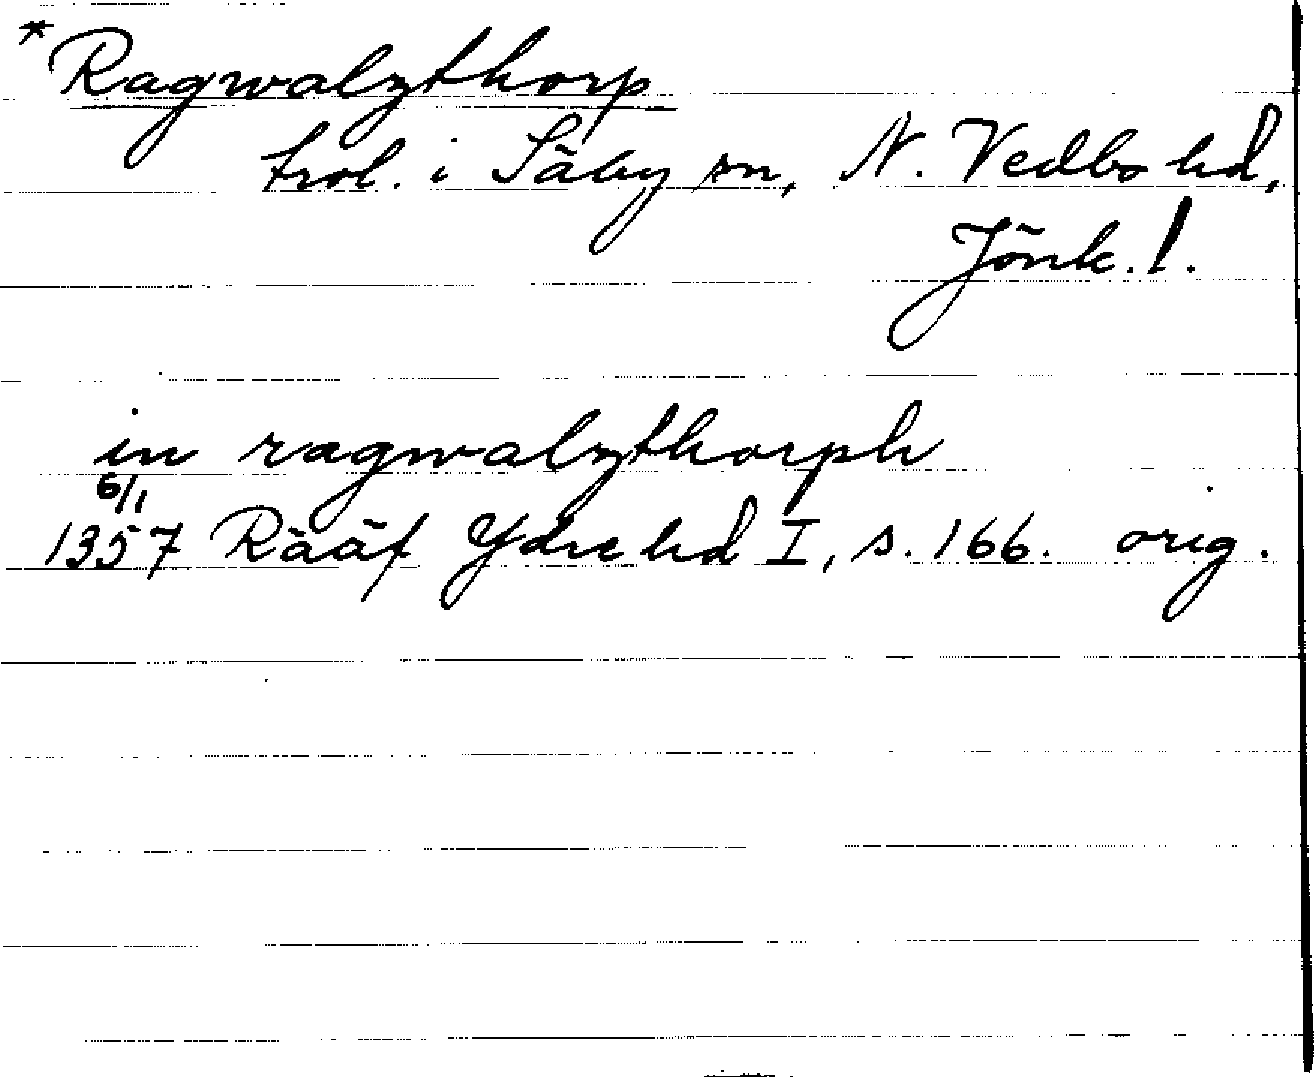 *Ragwalzthorp
trol. i Säby sn, N. Vedbo hd,
Jönk. l.
in ragwalzthorph
6/1
1357 Rääf Ydre hd I, s. 166. orig.